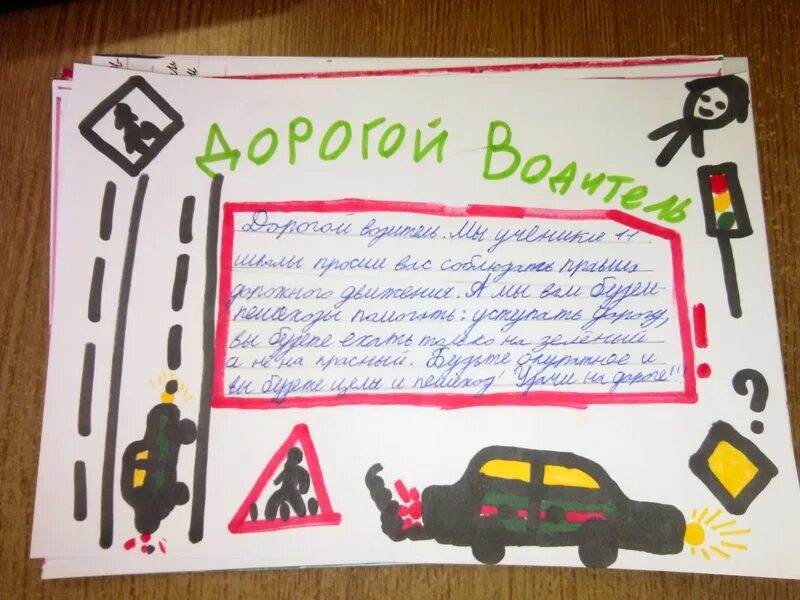 ДОРОГОЙ ВОДИТЕЛЬ
Дорогой водитель. Мы ученики 11
школы просим вас соблюдать правила
дорожного движения. А мы вам будем
пешеходы помогать: уступать дорогу,
вы будете ехать только на зелёний
а не на красный. Будьте окуратное и
вы будете целы и пешеход! Удачи на дороге!!!
!
?